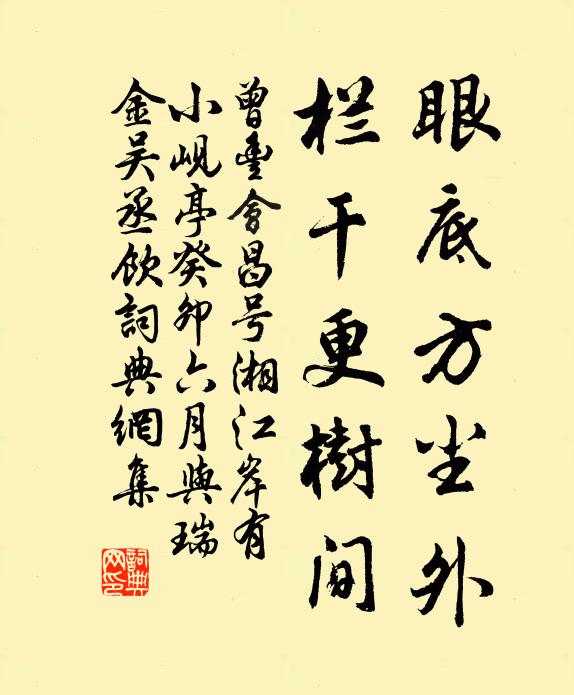 眼底方尘外
栏干更樹间
曾豊会昌号湘江岸有
小岘亭癸卯六月與瑞
金吴丞饮詞典網集
詞典网印